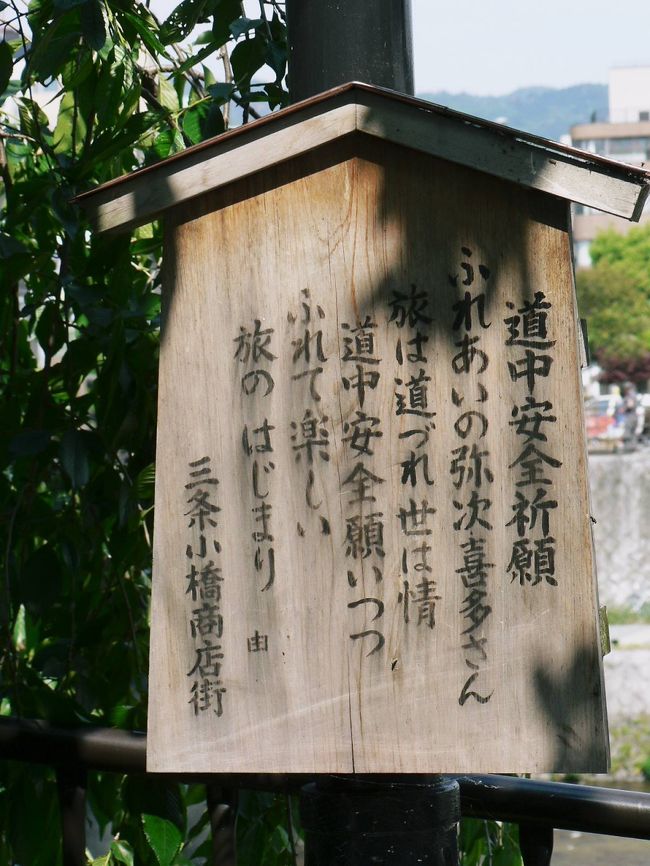 道中安全祈願
ふれあいの弥次喜多さん
旅は道づれ世は情
道中安全願いつつ
ふれて楽しい
旅の はじまり 由
三条小橋商店街